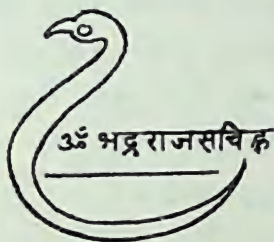 ॐ भद्रराजसचिह्न